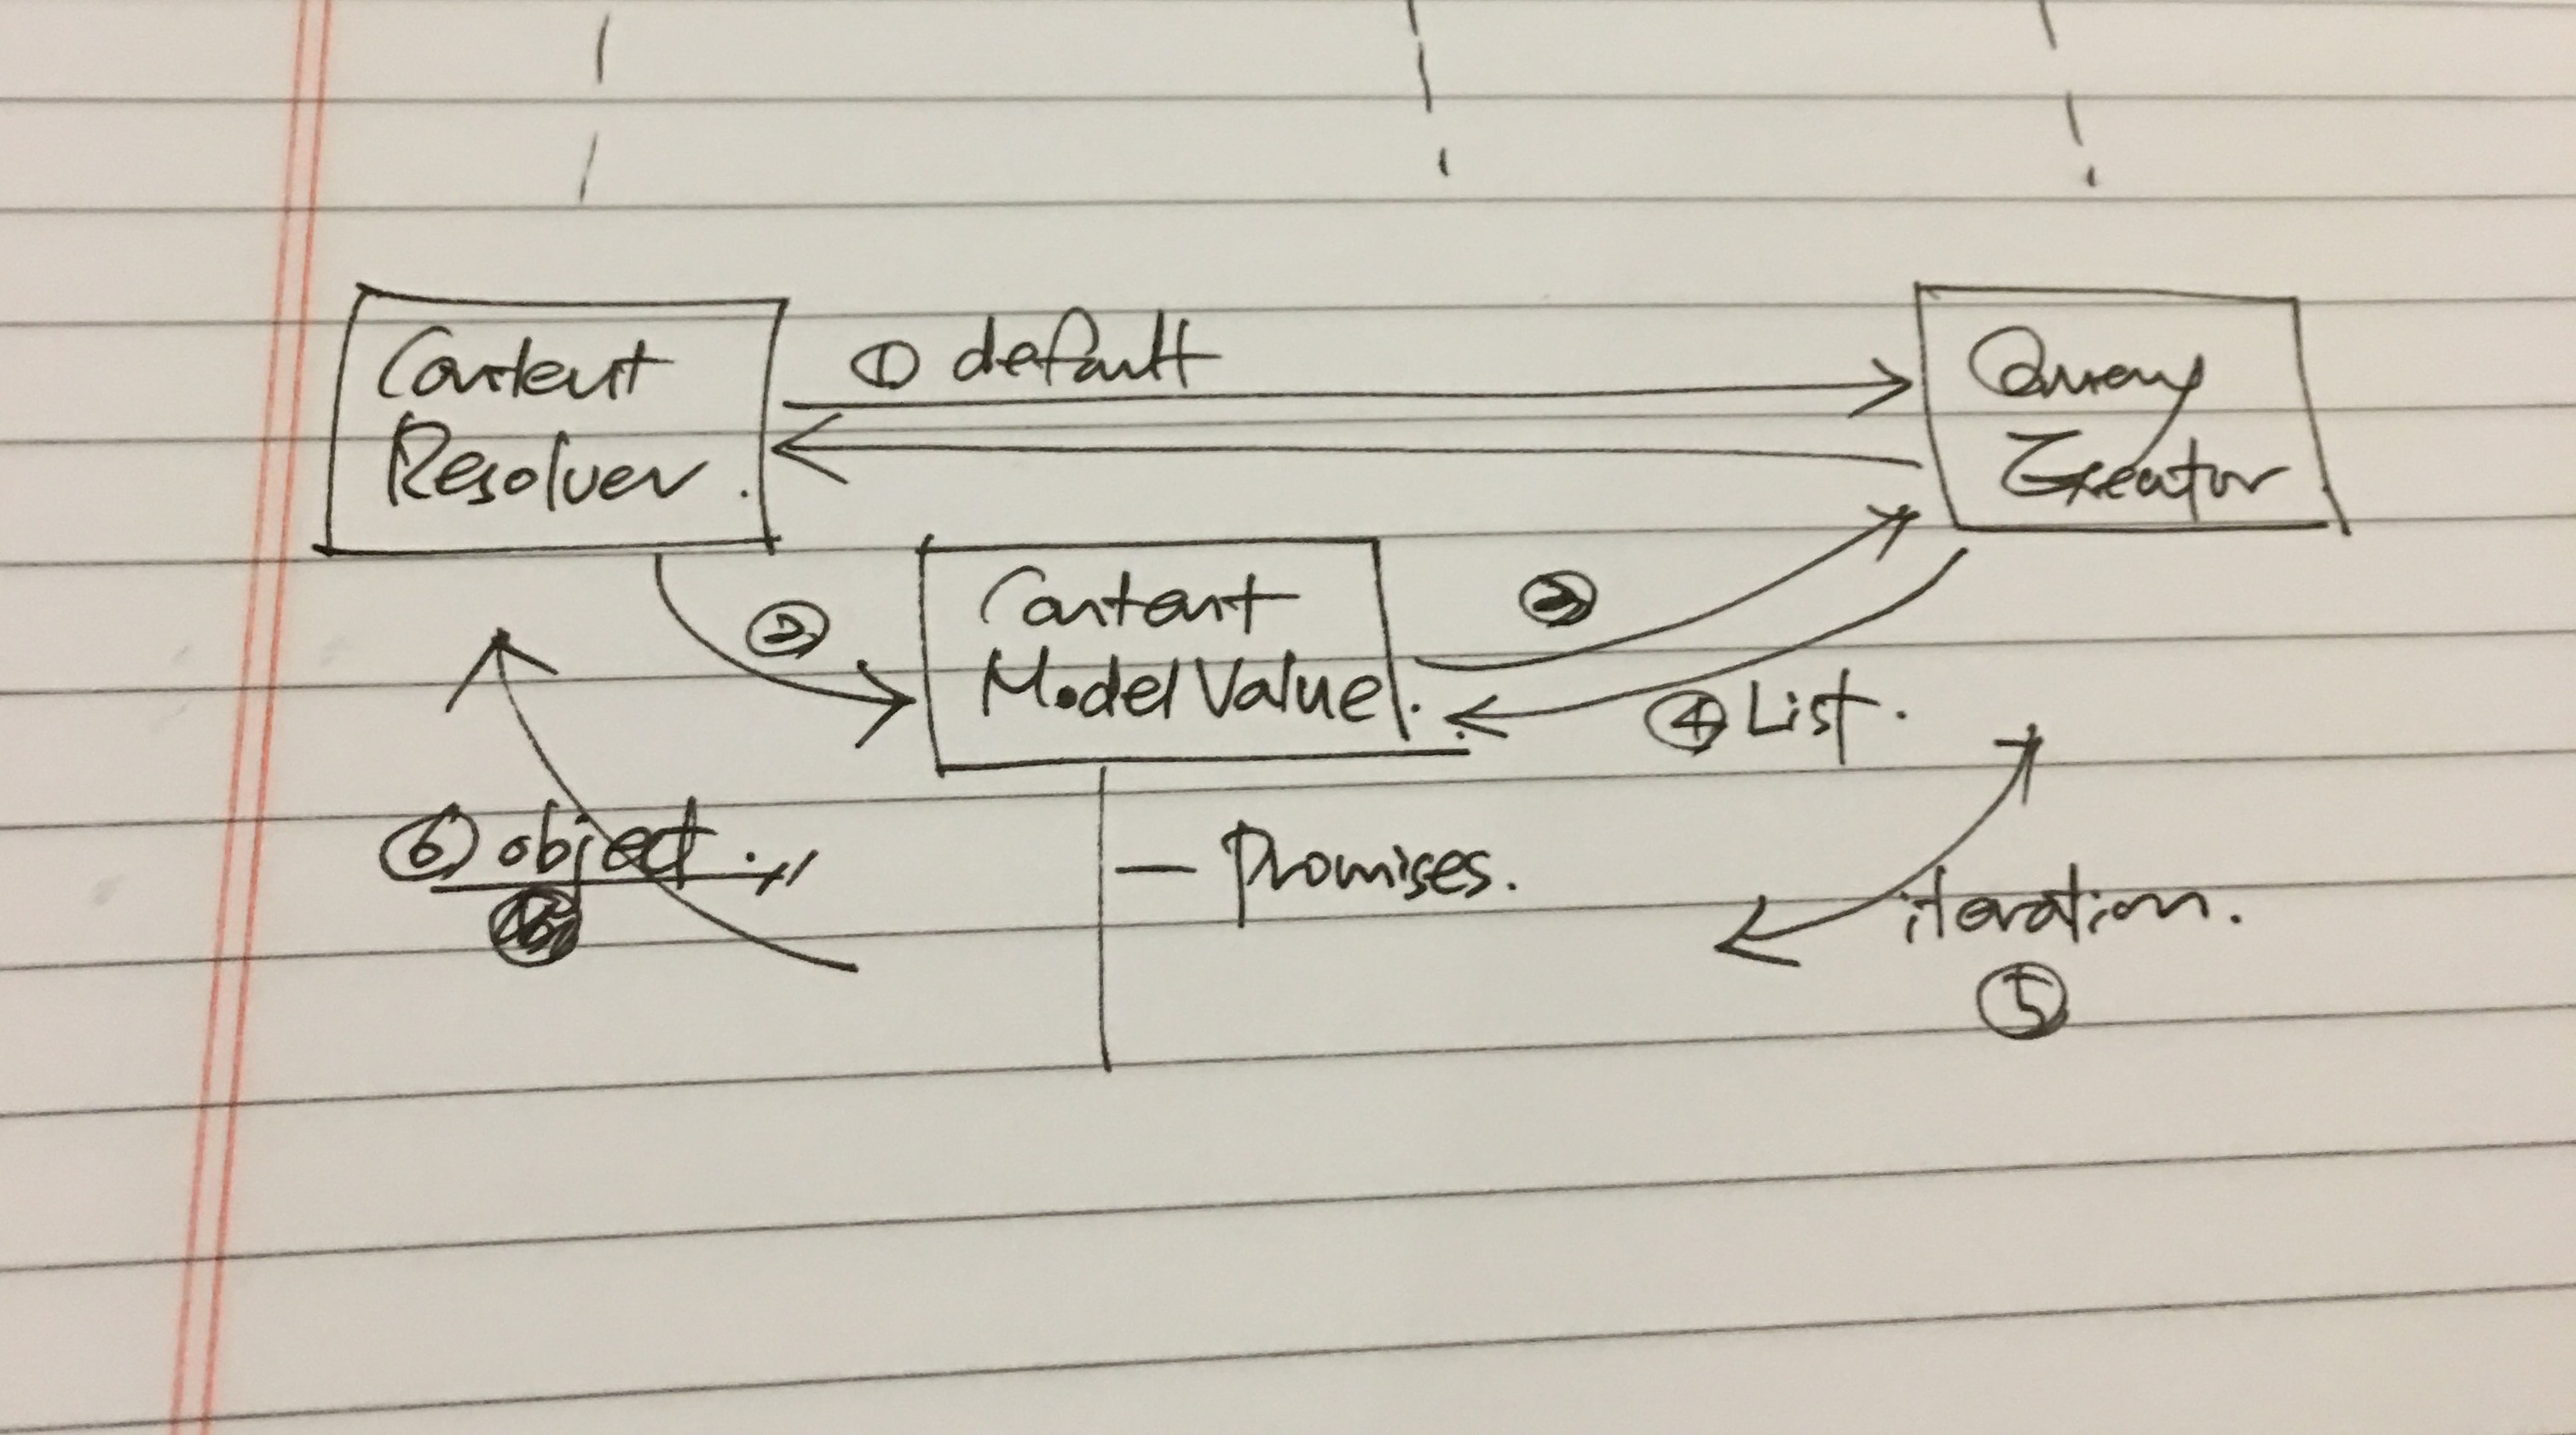 Content
Resolver.
① default
Query
Creator
Content
Model Value.
②
③
④ List.
⑥ object.
— Promises.
iteration.
⑤